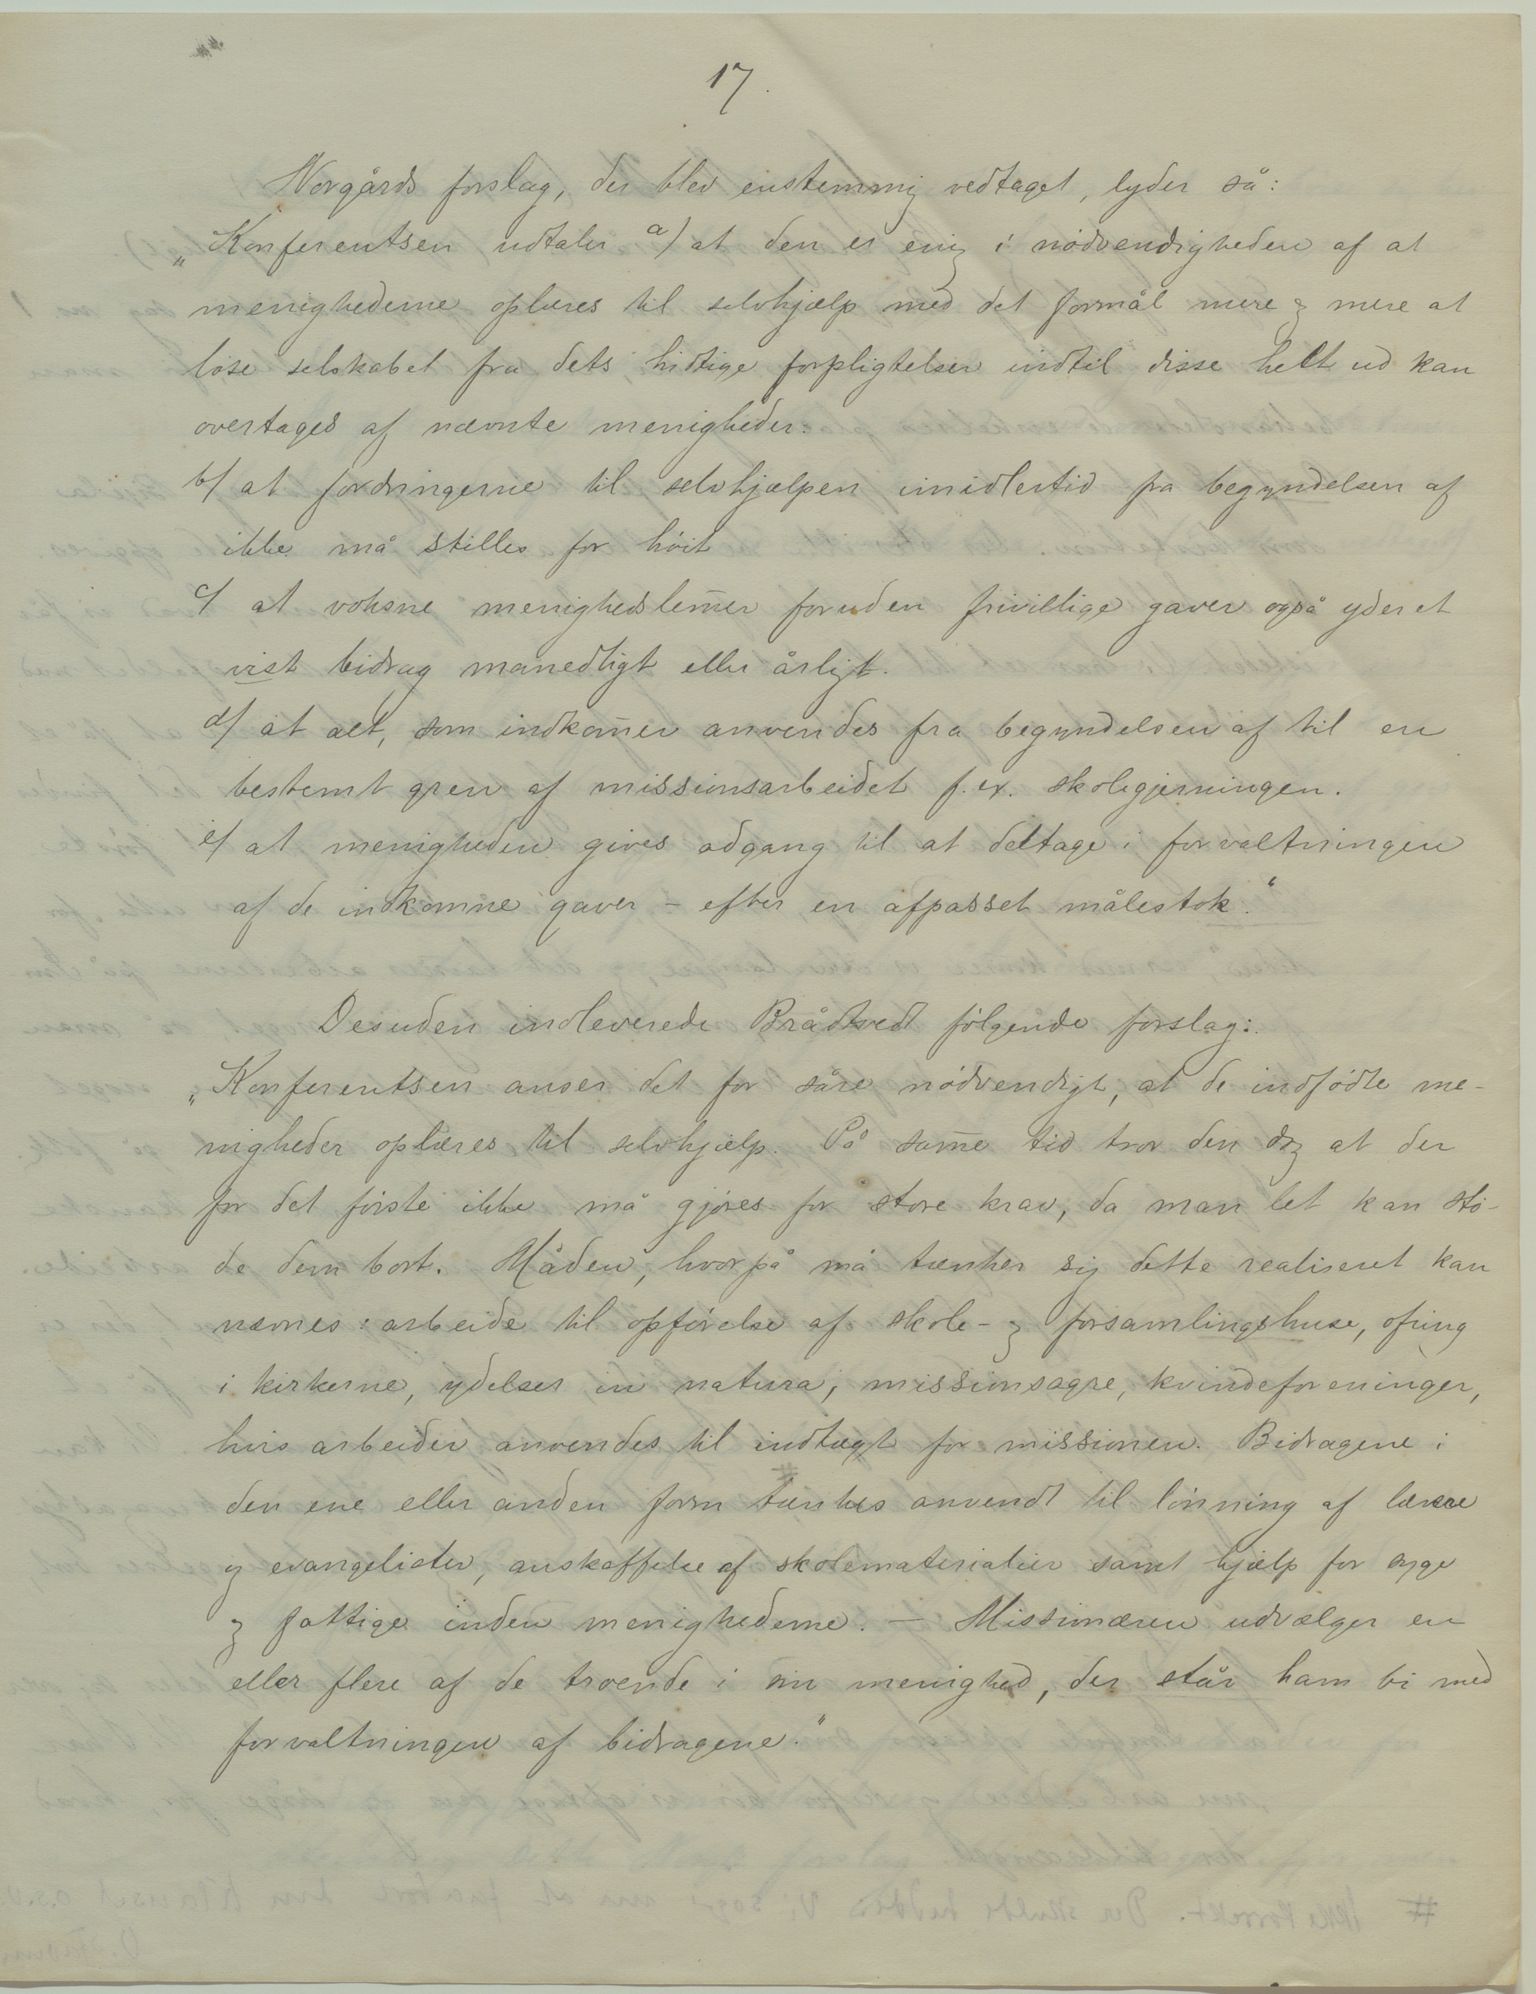 17.
Norgårds forslag, der blev enstemmig vedtaget, lyder så:
„Konferentsen udtaler a) at den er enig i nödvendigheden af at
menighederne oplæres til selvhjælp med det formål mere og mere at
löse selskabet fra dets hidtige forpligtelser indtil disse helt ud kan
overtages af nævnte menigheder.
b) at fordringerne til selvhjælpen imidlertid fra begyndelsen af
ikke må stilles for höit
c) at voksne menighedslem̄er foruden frivillige gaver også yder et
vist bidrag manedligt eller årligt.
d) at alt, som indkom̄er anvendes fra begyndelsen af til en
bestemt gren af missionsarbeidet f. ex. skolegjerningen.
e) at menigheden gives adgang til at deltage i forvaltningen
af de indkomne gaver – efter en afpasset målestok."
Desuden indleverede Brådtvedt fölgende forslag:
„Konferentsen anser det for såre nödvendigt, at de indfödte me-
nigheder oplæres til selvhjælp. På sam̄e tid tror den dog at der
for det förste ikke må gjöres for store krav, da man let kan stö-
de dem bort. Måden, hvorpå må tænkes sig dette realiseret kan
nævnes: arbeide til opförelse af skole- og forsamlingshuse, ofring
i kirkerne, ydelser in natura, missionsagre, kvindeforeninger,
hvis arbeider anvendes til indtægt for missionen. Bidragene i
den ene eller anden form tænkes anvendt til lönning af lærere
og evangelister, anskaffelse af skolematerialier samt hjælp for syge
og fattige inden menighederne. — Missionæren udvælger en
eller flere af de troende i sin menighed, der står ham bi med
forvaltningen af bidragene."